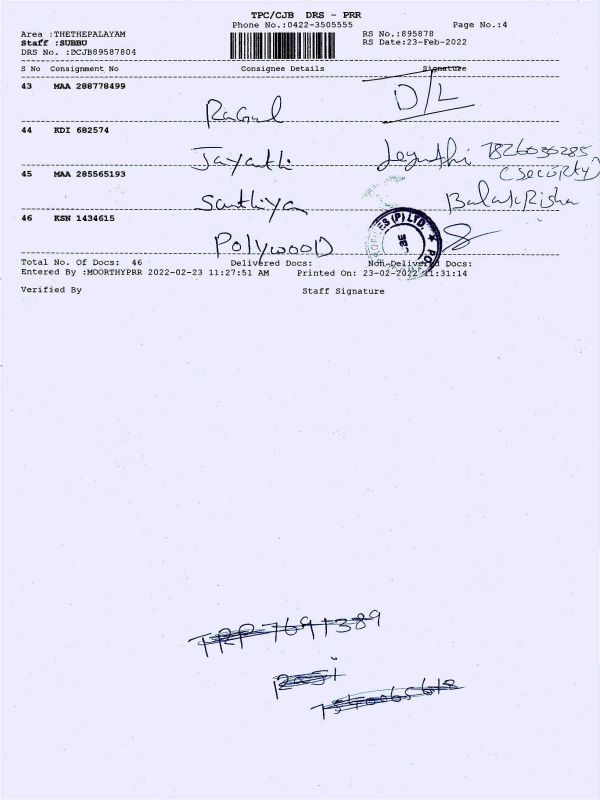 TPC/CJB DRS - PRR
Phone No.:0422-3505555 Page No.:4
Area :THETHEPALAYAM RS No.:895878
Staff :SUBBU RS Date:23-Feb-2022
DRS No. :DCJB89587804
S No Consignment No Consignee Details Signature
43 MAA 288778499
Ragul D/L
44 KDI 682574
Jayanthi Jeyanthi 7826030285
45 MAA 285565193 (security)
Santhiya Balakrisha
46 KSN 1434615
Polywood
ES (P) LTD. ★ PO
CBE
Total No. Of Docs: 46 Delivered Docs: Non-Delivered Docs:
Entered By :MOORTHYPRR 2022-02-23 11:27:51 AM Printed On: 23-02-2022 11:31:14
Verified By Staff Signature
TRP 7691389